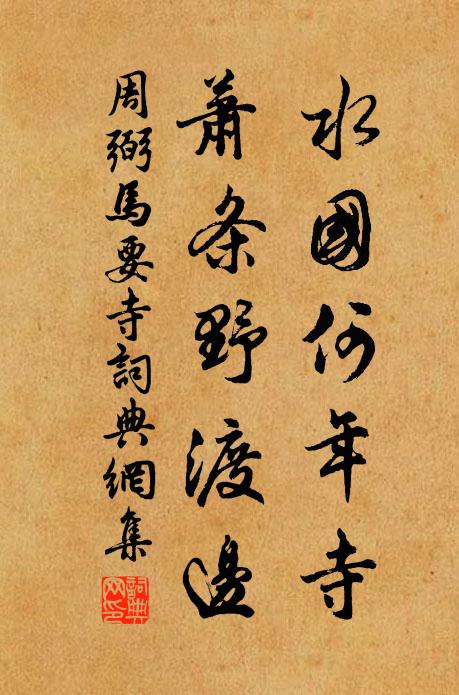 水國何年寺
蕭条野渡邊
周弼馬要寺詞典網集
詞典網印